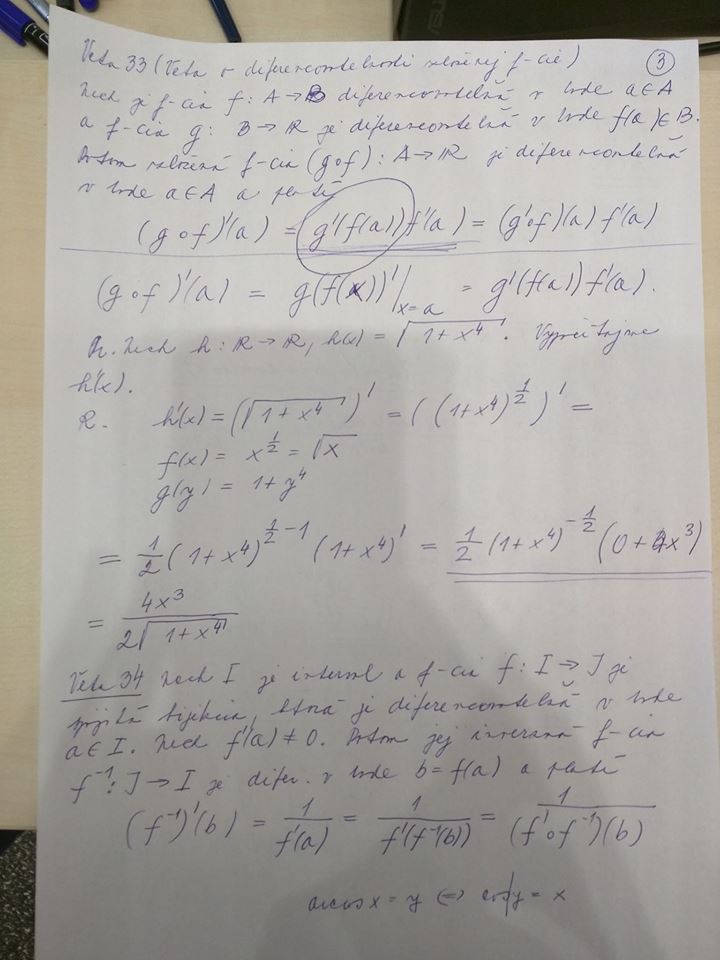 Veta 33 (Veta o diferencovateľnosti zloženej f-cie) 3
Nech je f-cia f: A → B diferencovateľná v bode a ∈ A
a f-cia g: B → R je diferencovateľná v bode f(a) ∈ B.
Potom zložená f-cia (g∘f): A → R je diferencovateľná
v bode a ∈ A a platí
(g∘f)'(a) = g'(f(a)) f'(a) = (g'∘f)(a) f'(a)
(g∘f)'(a) = g(f(x))'|x=a = g'(f(a)) f'(a).
Pr. Nech h: R → R, h(x) = √(1+x⁴). Vypočítajme
h'(x).
R. h'(x) = (√(1+x⁴))' = ((1+x⁴)^(1/2))' =
f(x) = x^(1/2) = √x
g(y) = 1+y⁴
= 1/2 (1+x⁴)^(1/2 - 1) (1+x⁴)' = 1/2 (1+x⁴)^(-1/2) (0+4x³)
= 4x³ / 2√(1+x⁴)
Veta 34 Nech I je interval a f-cia f: I → J je
spojitá bijekcia, ktorá je diferencovateľná v bode
a ∈ I. Nech f'(a) ≠ 0. Potom jej inverzná f-cia
f⁻¹: J → I je difer. v bode b = f(a) a platí
(f⁻¹)'(b) = 1/f'(a) = 1/f'(f⁻¹(b)) = 1/(f'∘f⁻¹)(b)
arccos x = y ⇔ cos y = x